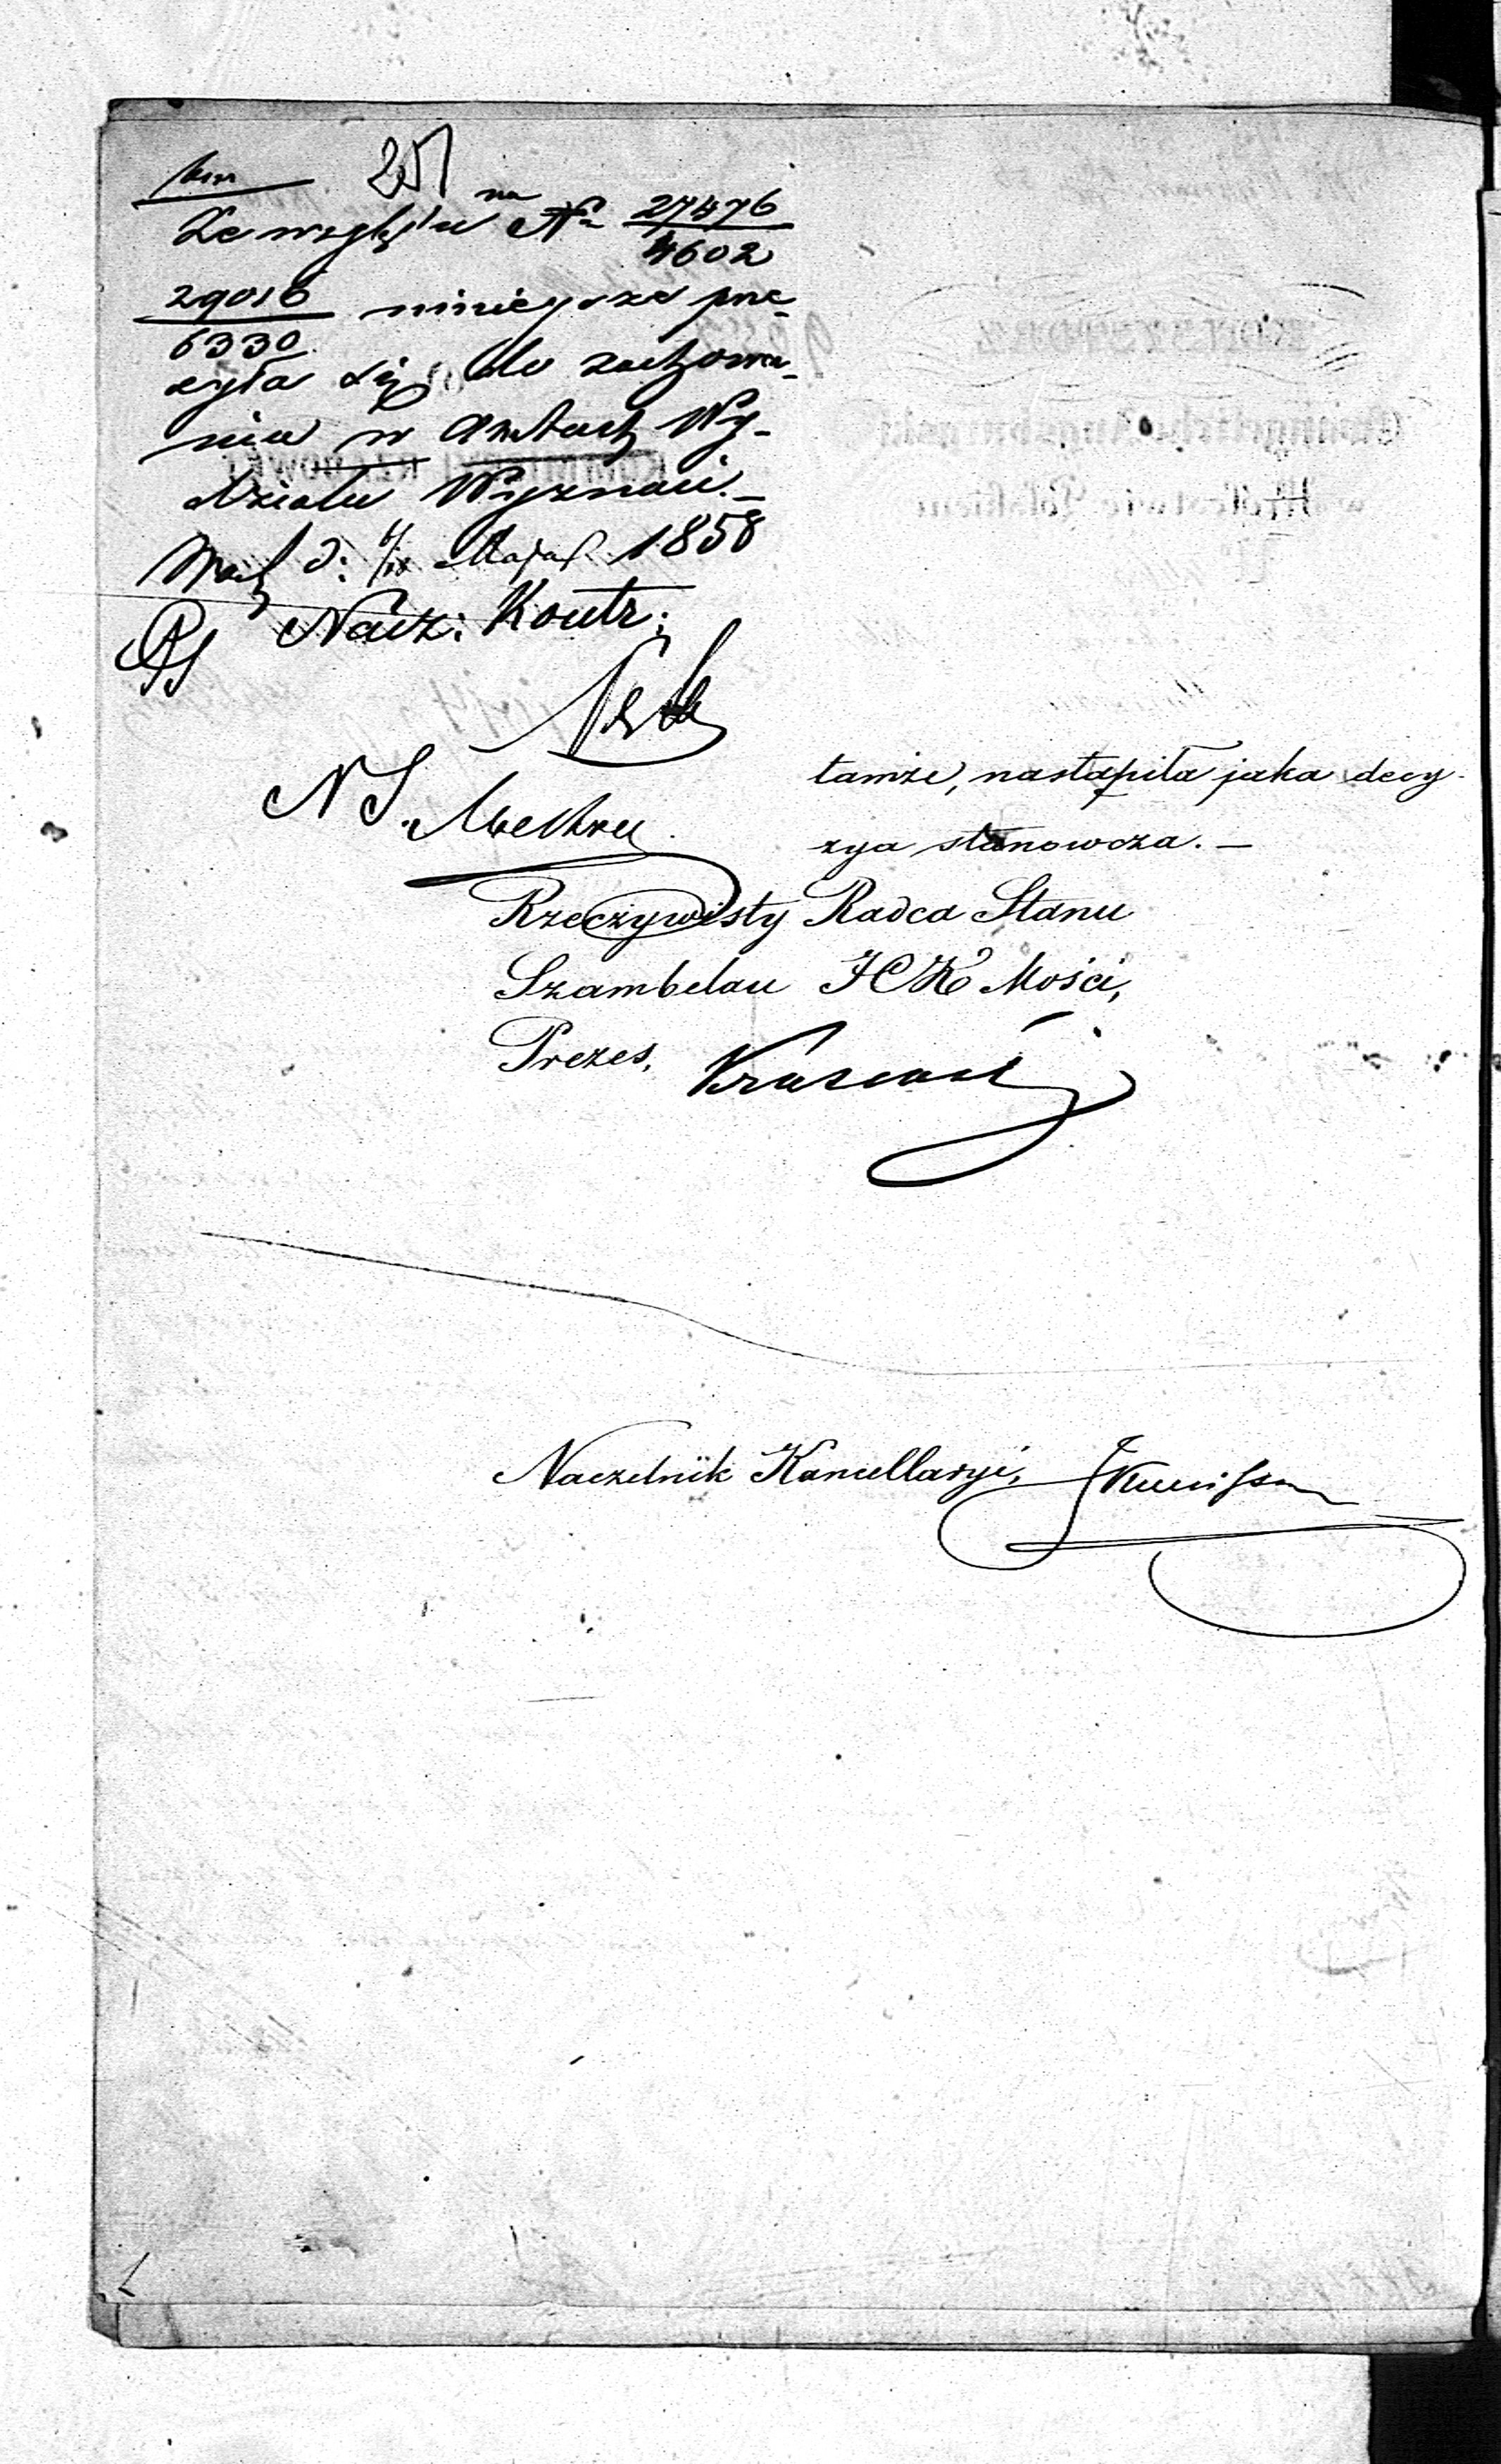 251
Ze względu na No 27476/4602
29016/6330 niniejsze prze
syła się do zachowa-
nia w aktach Wy-
działu Wyznań. —
d: 6/18 Maja 1858
Nacz: Kontr:
NS.
tamże, nastąpiła jaka decy-
zya stanowcza. —
Rzeczywisty Radca Stanu
Szambelan JCK Mości,
Prezes,
Naczelnik Kancellaryi,